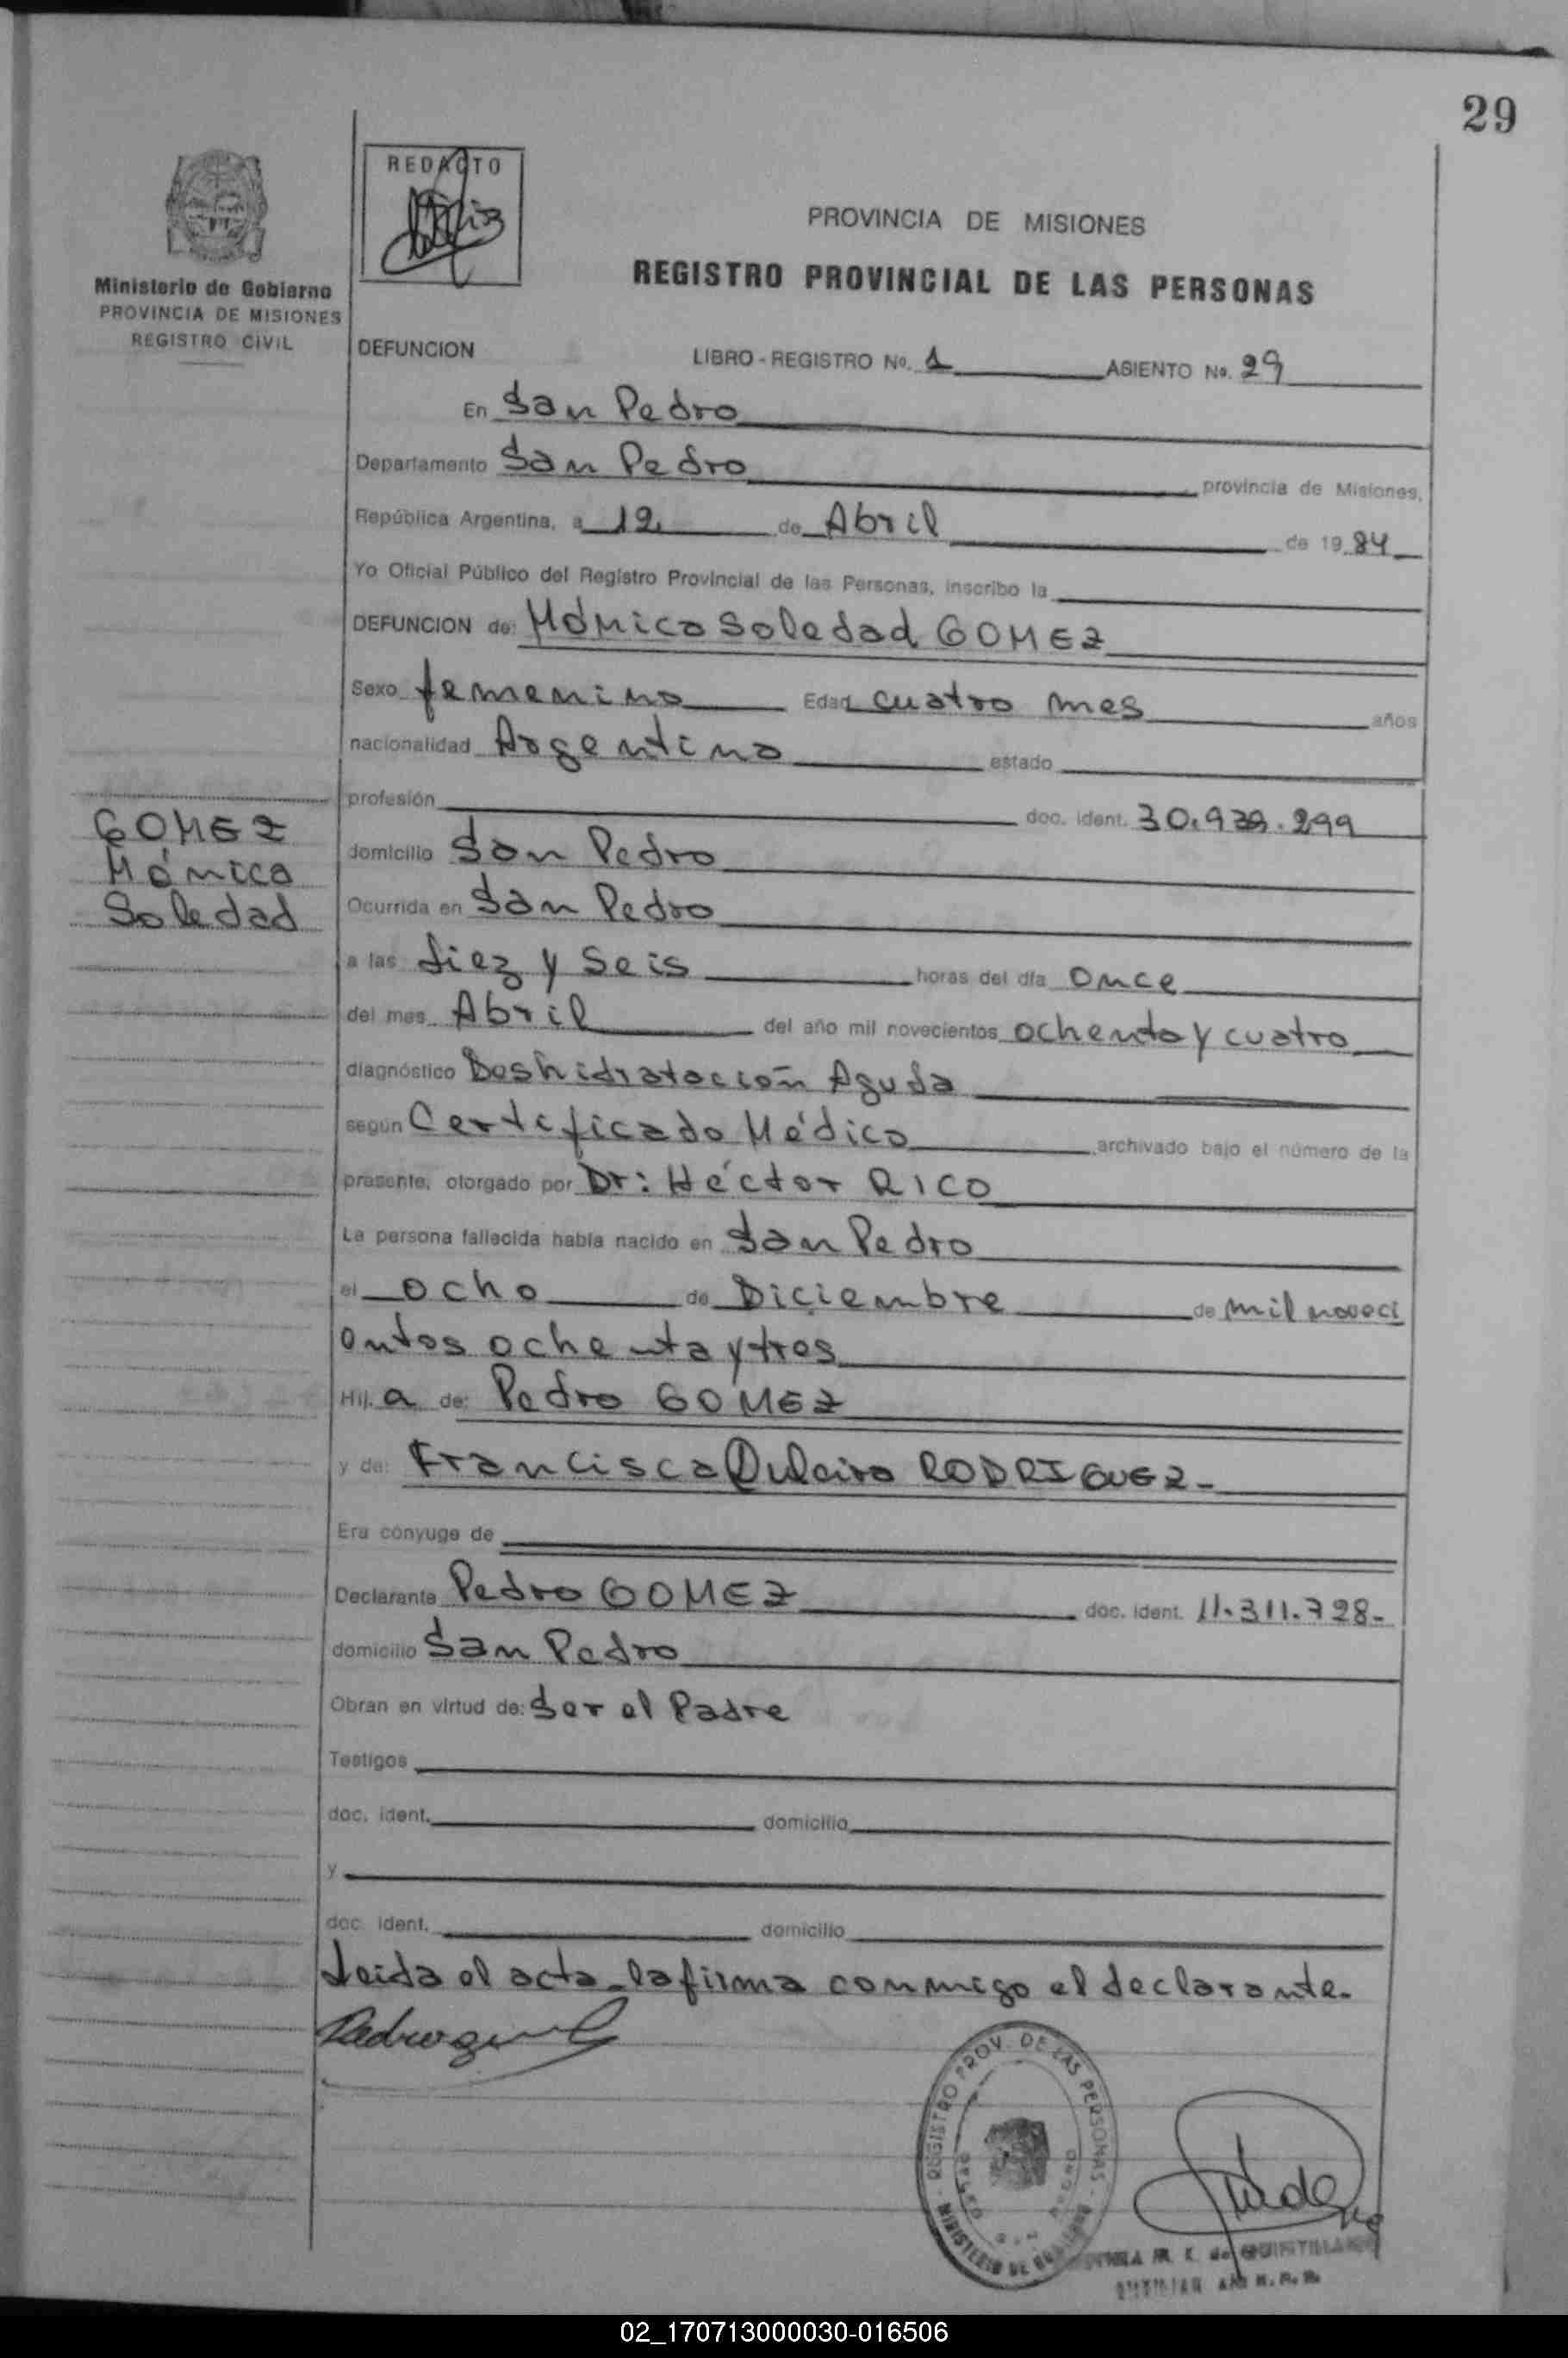 29
REDACTO
PROVINCIA DE MISIONES
REGISTRO PROVINCIAL DE LAS PERSONAS
Ministerio de Gobierno
PROVINCIA DE MISIONES
REGISTRO CIVIL
DEFUNCION LIBRO - REGISTRO No. 1 ASIENTO No. 29
En San Pedro
Departamento San Pedro provincia de Misiones,
República Argentina, a 12 de Abril de 1984
Yo Oficial Público del Registro Provincial de las Personas, inscribo la
DEFUNCION de: Mónica Soledad GOMEZ
Sexo femenino Edad cuatro mes años
nacionalidad Argentina estado
profesión doc. ident. 30.939.299
GOMEZ
Mónica
Soledad
domicilio San Pedro
Ocurrida en San Pedro
a las diez y seis horas del día once
del mes Abril del año mil novecientos ochenta y cuatro
diagnóstico Deshidratación Aguda
según Certificado Médico archivado bajo el número de la
presente, otorgado por Dr: Héctor RICO
La persona fallecida había nacido en San Pedro
el ocho de Diciembre de mil noveci
entos ochenta y tres
Hij a de: Pedro GOMEZ
y de: Francisca Dulcira RODRIGUEZ-
Era cónyuge de
Declarante Pedro GOMEZ doc. ident. 11.311.728-
domicilio San Pedro
Obran en virtud de: Ser el Padre
Testigos
doc. ident. domicilio
y
doc. ident. domicilio
Leida el acta la firma conmigo el declarante.
REGISTRO PROV. DE LAS PERSONAS
MINISTERIO DE
02_170713000030-016506